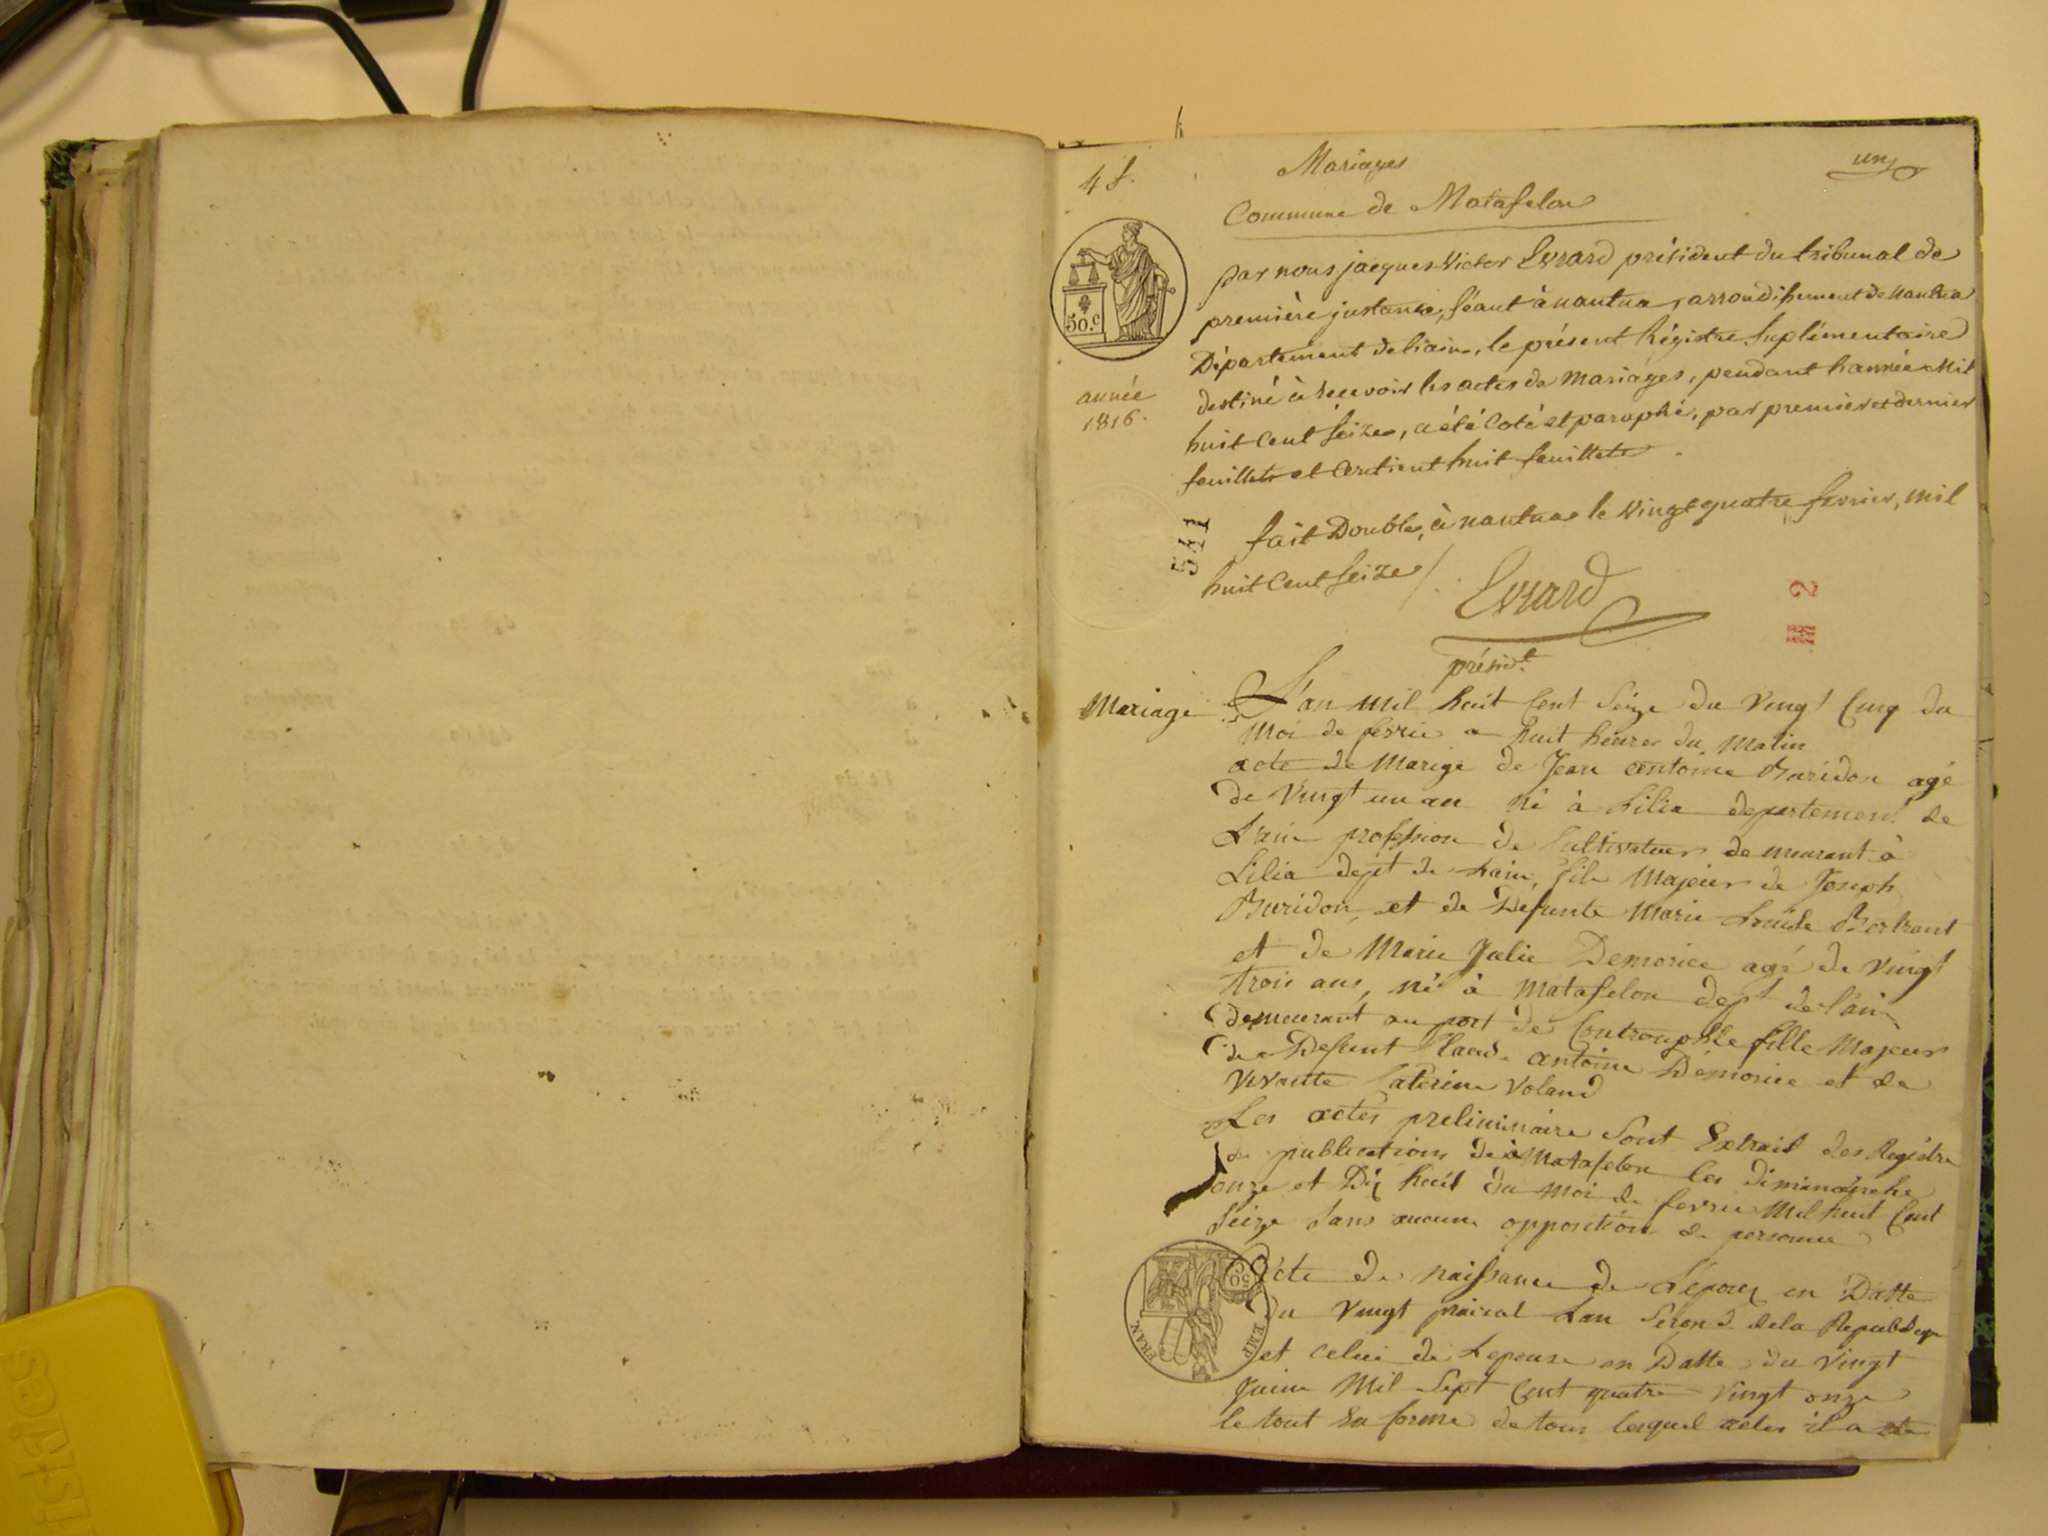 4 f.
Mariages
un
Commune de Matafelon
50.c
année
1816.
par nous jacques Victor Evrard président du tribunal de
première justance, séant à nantua, arrondissement de nantua
Département de l'ain, le présent Régistre suplémentaire
destiné à recevoir les actes de Mariages, pendant l'année Mil
huit cent seize, a été coté et paraphé, par premier et dernier
feuillets et contient huit feuillets.
fait Double, à nantua le vingt quatre fevrier, mil
huit cent seize /.
Evrard
présid.t
511
2
Mariage
L'an mil huit cent seize du vingt cinq du
moi de fevrie a huit heures du matin
acte de marige de Jean antoine Buridon agé
de vingt un an né à Lilia departement de
Lain profession de Cultivateur demeurant à
Lilia dept de Lain, fils Majeur de Joseph
Buridon et de Defunte Marie Bertrant
et de Marie Julie Demorice agé de vingt
trois ans, né à Matafelon dept de l'ain
demeurant au port de fille Majeur
de Defunt Claude antoine Demorice et de
vivante Caterine Voland
Les actes preliminaire sont Extrait des Registre
de publications de Matafelon les dimanche
onze et Dix huit du moi de fevrie Mil huit Cent
seize sans aucune opposition de personne
Acte de naissance de L'epoux en Datte
du vingt prairal Lan second dela Republique
et celui de Lepouse en Datte du vingt
Juin Mil Sept Cent quatre vingt onze
le tout En forme de tous lesquel actes il a ete
50 C
EMP. FRAN.